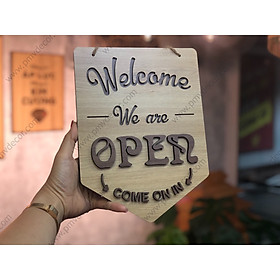 Welcome
We are
OPEN
COME ON IN